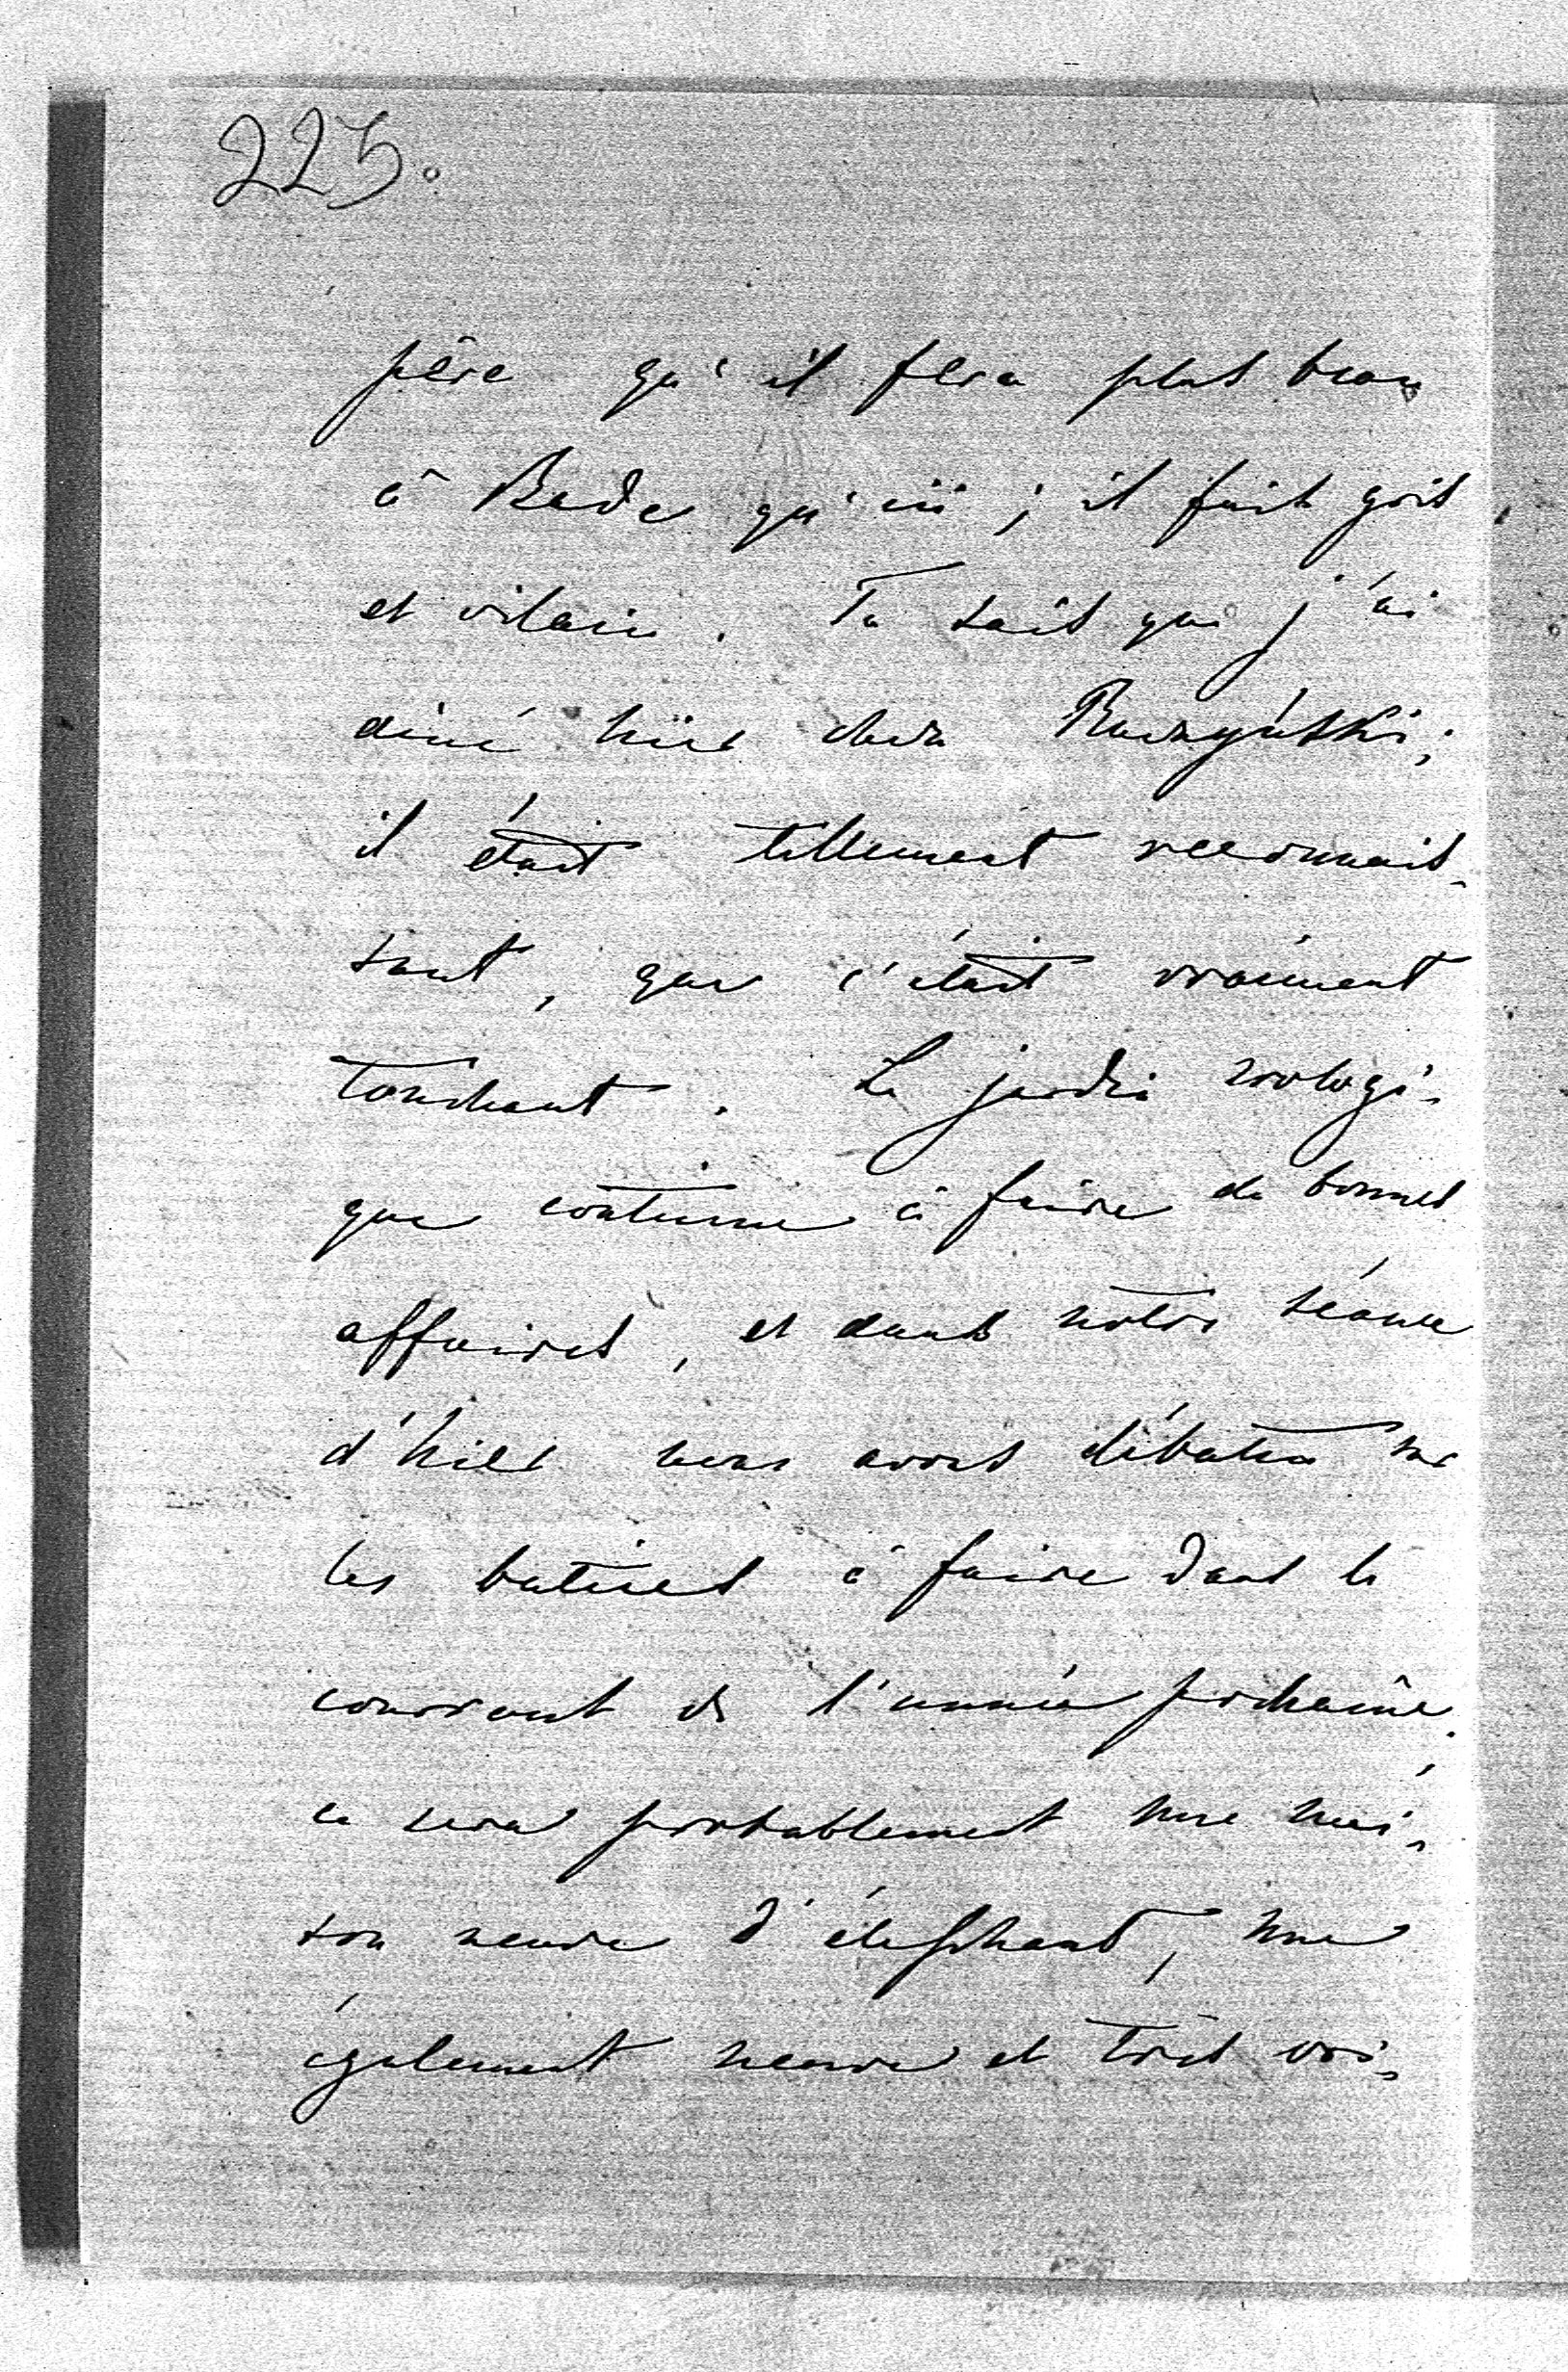 225.
père qu'il fera plus beau
à Bade qu'ici ; il fait gris
et vilain. Tu sais que j'ai
diné hier chez
il était tellement reconnais-
sant, que c'était vraiment
touchant. Le jardin zoologi-
que continue à faire de bonnes
affaires, et dans notre séance
d'hier nous avons débattu sur
les batises à faire dans le
courrant de l'année prochaine.
ce sera probablement une mai-
son neuve d'éléphant, une
également neuve et très voi-